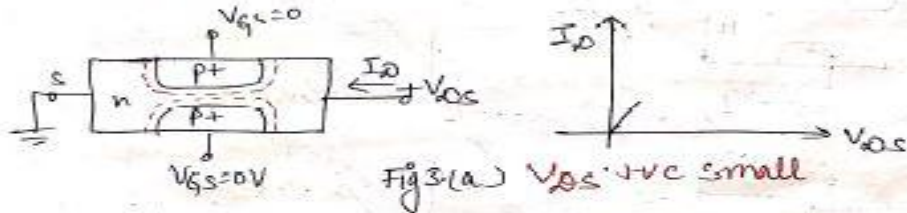 VGS=0
S
n
P+
P+
ID
+VDS
VGS=0V
ID
VDS
Fig 3.(a) VDS +ve small